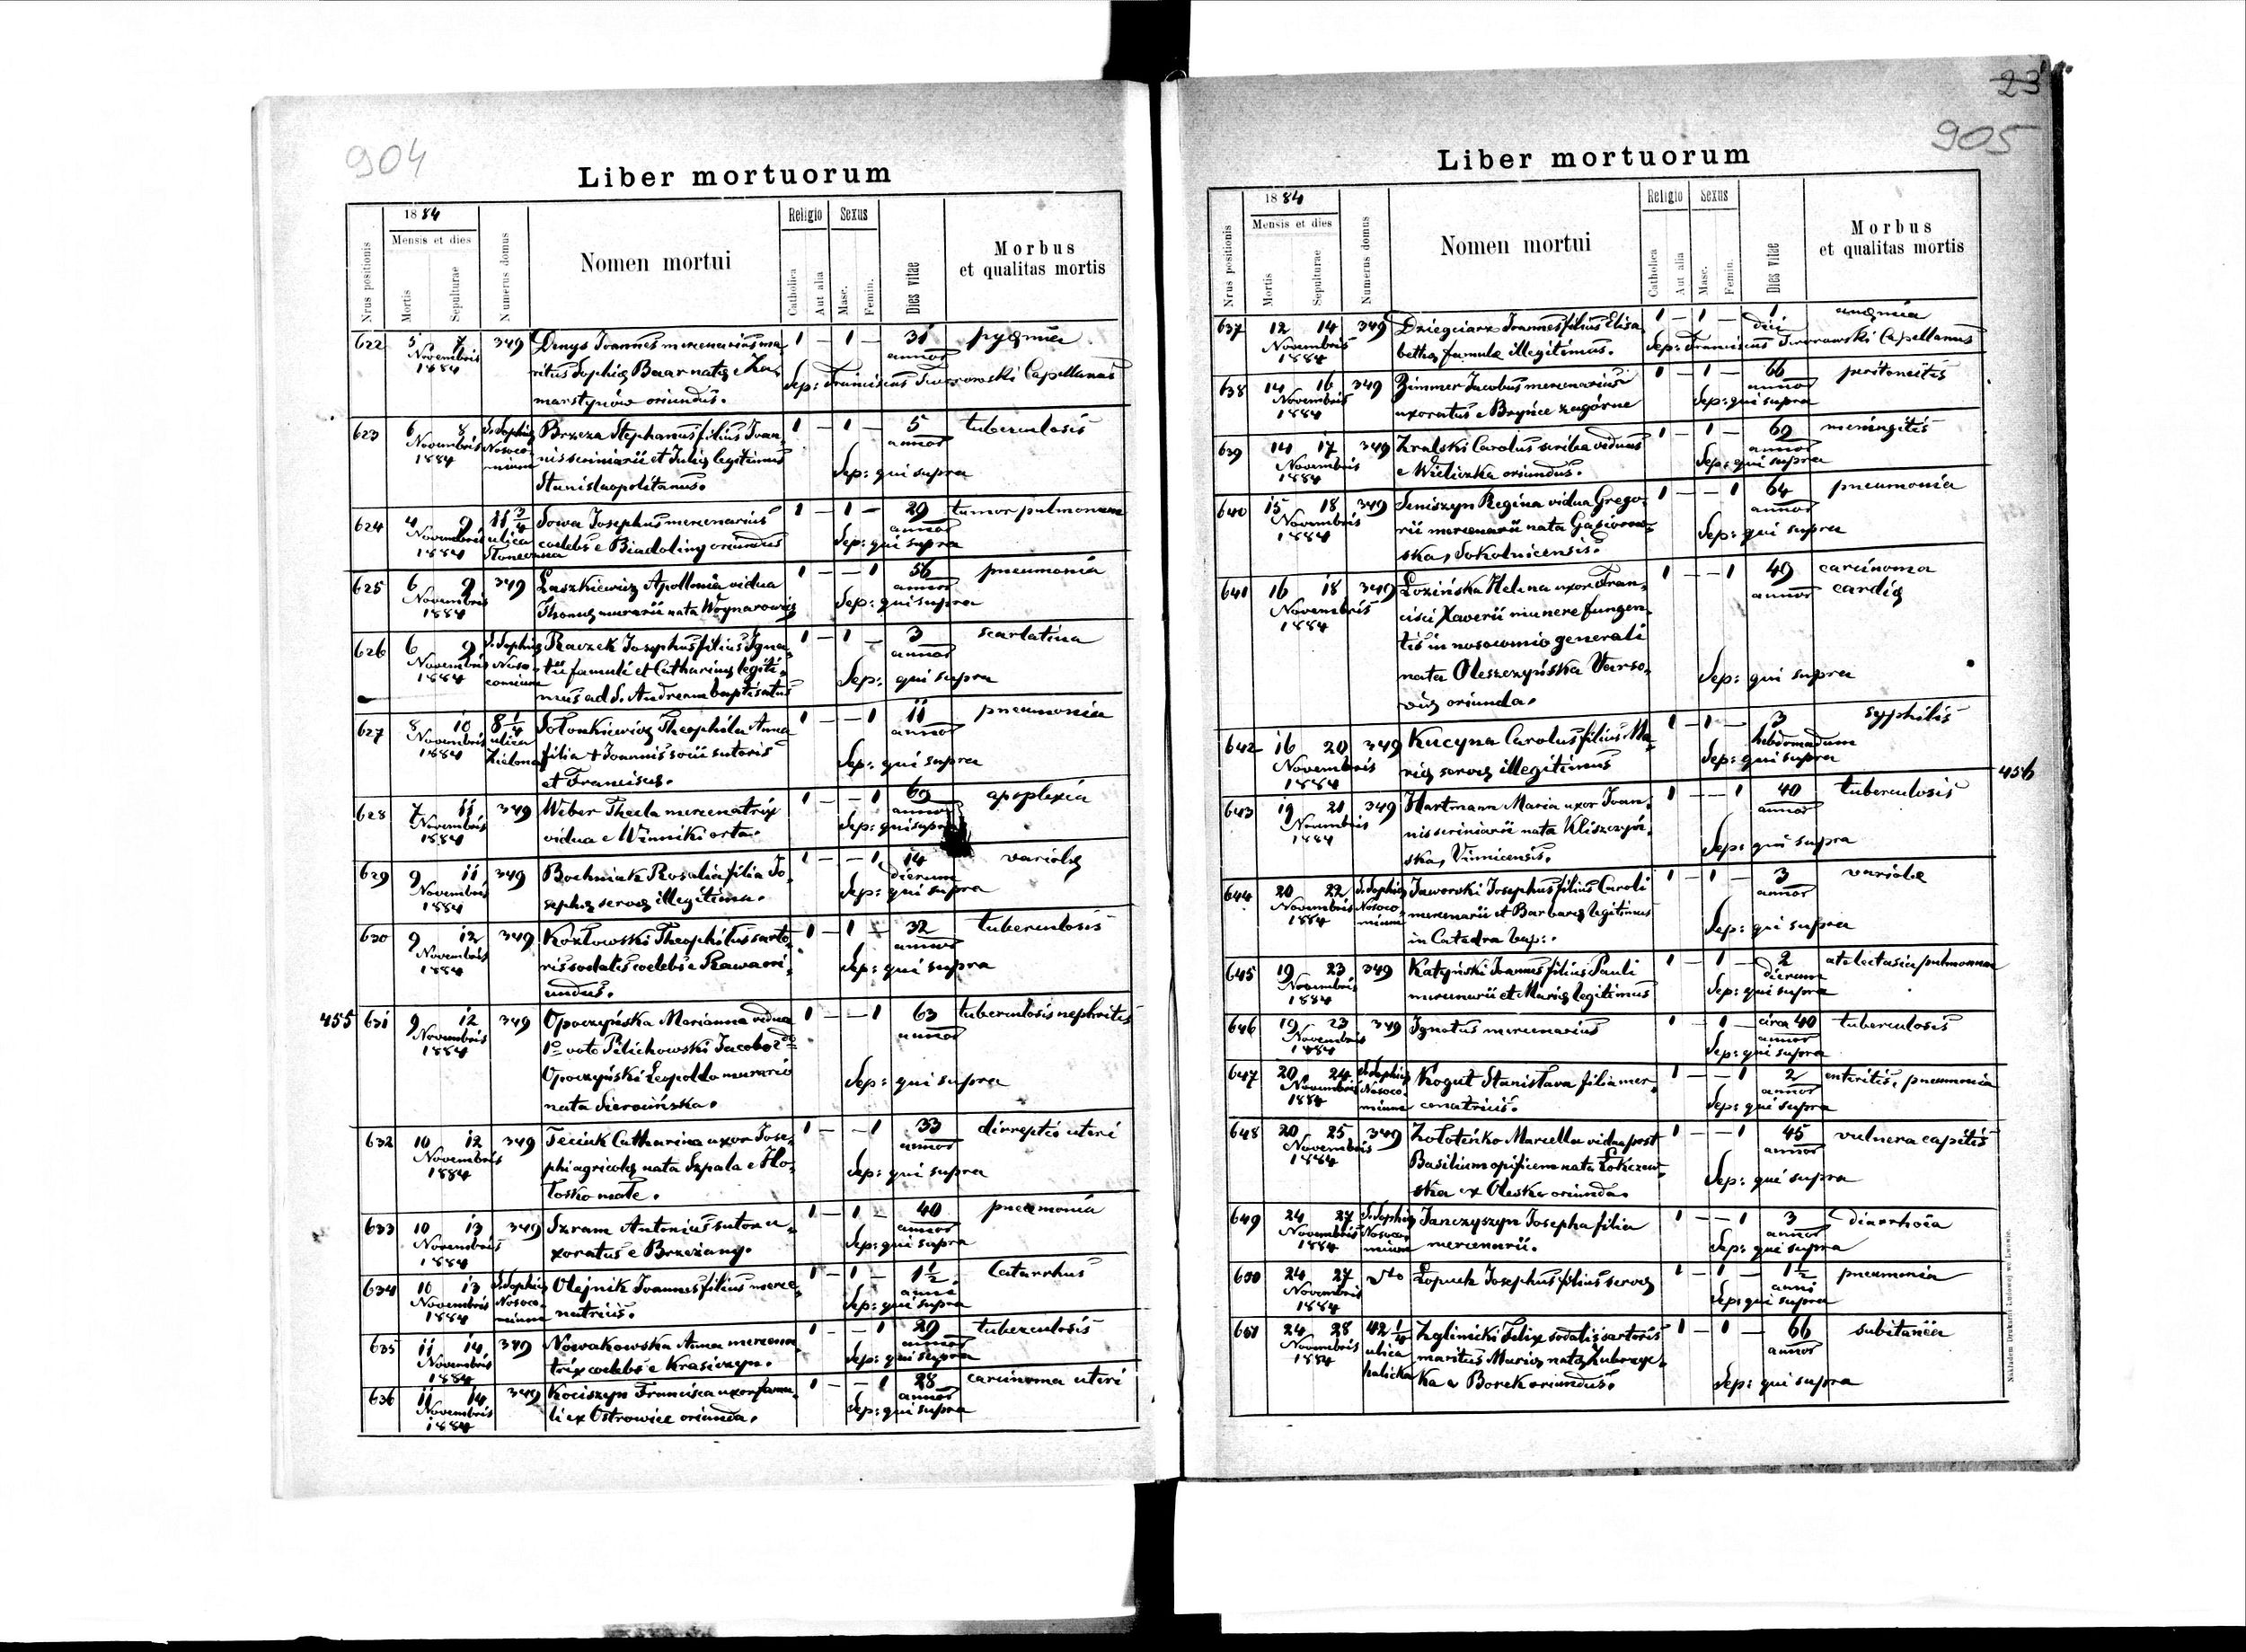 904
Liber mortuorum
Nrus positionis
1884
Mensis et dies
Mortis
Sepulturae
Numerus domus
Nomen mortui
Religio
Catholica
Aut alia
Sexus
Masc.
Femin.
Dies vitae
Morbus
et qualitas mortis
622 5 7 349 Denys Joannes mercenarius ma, 1 – 1 – 31 pyęmia
Novembris ritus Sophię Baar natę e Za, annor
1884 marstynów oriundus. Sep: Franciscus Tworowski Capellanus
623 6 8 S. Sophię Brzeza Stephanus filius Joan, 1 – 1 – 5 tuberculosis
Novembris Nosoco- nis scriniarii et Julię legitimus annor
1884 mium Stanislaopolitanus. Sep: qui supra
624 4 9 11 3/4 Sowa Josephus mercenarius 1 – 1 – 29 tumor pulmonum
Novembris ulica coelebs e Biadoliny oriundus annor
1884 Słonecznna Sep: qui supra
625 6 9 349 Laszkiewicz Apollonia vidua 1 – – 1 56 pneumonia
Novembris Thomę murarii nata Woynarowicz annor
1884 Sep: qui supra
626 6 9 S. Sophię Raczek Josephus filius Igna, 1 – 1 – 3 scarlatina
Novembris Noso- tii famuli et Catharinę legiti, annor
1884 comium mus ad S. Andream baptisatus Sep: qui supra
627 8 10 8 1/4 Sołonkiewicz Theophila Anna 1 – – 1 11 pneumonia
Novembris ulica filia + Joannis socii sutoris annor
1884 Zielona et Franciscę. Sep: qui supra
628 7 11 349 Weber Thecla mercenatrix 1 – – 1 69 apoplexia
Novembris vidua e Winniki orta. annor
1884 Sep: qui supra
629 9 11 349 Bochniak Rosalia filia Jo, 1 – – 1 14 variolę
Novembris sephę servę illegitima. dierum
1884 Sep: qui supra
630 9 12 349 Kozłowski Theophilus sarto, 1 – 1 – 32 tuberculosis
Novembris ris sodalis coelebs e Rawa ori, annor
1884 undus. Sep: qui supra
455 631 9 12 349 Opoczyńska Marianna vidua 1 – – 1 63 tuberculosis nephritis
Novembris 1o voto Pilichowski Jacobo 2do annor
1884 Opoczyński Leopoldo murario Sep: qui supra
nata Sierocińska.
632 10 12 349 Teciuk Catharina uxor Jose, 1 – – 1 33 dirreptio uteri
Novembris phi agricolę nata Szpala e Ho, annor
1884 łosko małe. Sep: qui supra
633 10 13 349 Szram Antonius sutor u, 1 – 1 – 40 pneumonia
Novembris xoratus e Brzeżany. annor
1884 Sep: qui supra
634 10 13 S. Sophię Olejnik Joannes filius merce, 1 – 1 – 1 1/2 Catarrhus
Novembris Nosoco- natricis. anni
1884 mium Sep: qui supra
635 11 14 349 Nowakowska Anna mercena, 1 – – 1 29 tuberculosis
Novembris trix coelebs e Krasiczyn. annor
1884 Sep: qui supra
636 11 14 349 Kociszyn Francisca uxor famu, 1 – – 1 28 carcinoma uteri
Novembris li ex Ostrowiec oriunda. annor
1884 Sep: qui supra
23
905
Liber mortuorum
Nrus positionis
1884
Mensis et dies
Mortis
Sepulturae
Numerus domus
Nomen mortui
Religio
Catholica
Aut alia
Sexus
Masc.
Femin.
Dies vitae
Morbus
et qualitas mortis
637 12 14 349 Dziegciarz Joannes filius Elisa, 1 – 1 – 1 anęmia
Novembris bethę famulę illegitimus. diei
1884 Sep: Franciscus Tworowski Capellanus
638 14 16 349 Zimmer Jacobus mercenarius 1 – 1 – 66 peritoneitis
Novembris uxoratus e Bryńce zagórne annor
1884 Sep: qui supra
639 14 17 349 Zralski Carolus scriba viduus 1 – 1 – 69 meningitis
Novembris e Wieliczka oriundus. annor
1884 Sep: qui supra
640 15 18 349 Seniszyn Regina vidua Grego, 1 – – 1 64 pneumonia
Novembris rii mercenarii nata Gąsiorow, annor
1884 ska, Sokolnicensis. Sep: qui supra
641 16 18 349 Łozińska Helena uxor Fran, 1 – – 1 49 carcinoma
Novembris cisci Xaverii munere fungen, annor cardię
1884 tis in nosocomio generali
nata Oleszczyńska Varso, Sep: qui supra
vię oriunda.
642 16 20 349 Kucyna Carolus filius Ma, 1 – 1 – 3 syphilis
Novembris rię servę illegitimus hebdomadum
1884 Sep: qui supra
456
643 19 21 349 Hartmann Maria uxor Joan, 1 – – 1 40 tuberculosis
Novembris nis scriniarii nata Kliszczyń, annor
1884 ska, Vinnicensis. Sep: qui supra
644 20 22 S. Sophię Jaworski Josephus filius Caroli 1 – 1 – 3 variola
Novembris Nosoco- mercenarii et Barbarę legitimus annor
1884 mium in Catedra bap:. Sep: qui supra
645 19 23 349 Katyński Joannes filius Pauli 1 – 1 – 2 atelectasia pulmonum
Novembris mercenarii et Marię legitimus dierum
1884 Sep: qui supra
646 19 23 349 Ignotus mercenarius 1 – 1 – circa 40 tuberculosis
Novembris annor
1884 Sep: qui supra
647 20 24 S. Sophię Kogut Stanisłava filia mer, 1 – – 1 2 enteritis, pneumonia
Novembris Nosoco- cenatricis. annor
1884 mium Sep: qui supra
648 20 25 349 Zołoteńko Marcella vidua post 1 – – 1 45 vulnera capitis
Novembris Basilium opificem nata Łokczew, annor
1884 ska ex Olesko oriunda. Sep: qui supra
649 24 27 S. Sophię Janczyszyn Josepha filia 1 – – 1 3 diarrhoea
Novembris Nosoco- mercenarii. annor
1884 mium Sep: qui supra
650 24 27 dto Łopuch Josephus filius servę 1 – 1 – 1 1/2 pneumonia
Novembris anni
1884 Sep: qui supra
651 24 28 42 1/4 Zglinicki Felix sodalis sartoris 1 – 1 – 66 subitanea
Novembris ulica maritus Marię natę Zubrzyc, annor
1884 halicka ka e Borek oriundus. Sep: qui supra
Nakładem Drukarni Ludowej we Lwowie.